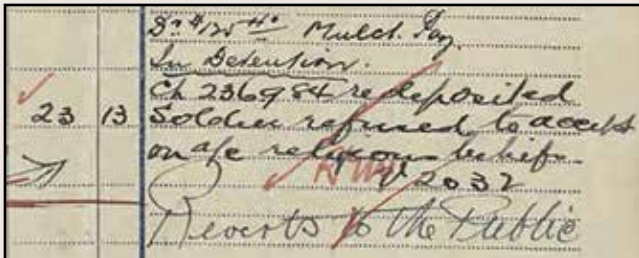 Mulct. Pay.
In Detention.
Ch 236984 redeposited
23 13 Soldier refused to accept
on a/c religious beliefs
2032
Reverts to the Public